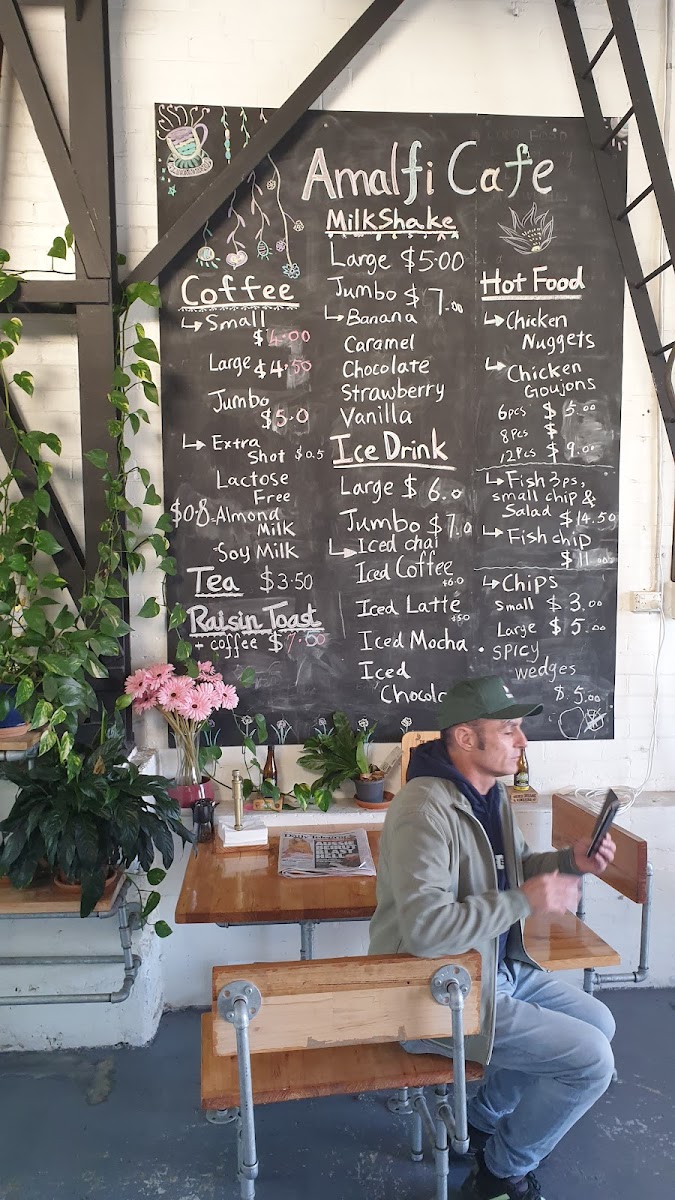 Amalfi Cafe
Coffee
↳ Small
$4.00
Large $4.50
Jumbo
$5.0
↳ Extra
Shot $0.5
Lactose
Free
$0.8 - Almond
Milk
- Soy Milk
Tea $3.50
Raisin Toast
+ coffee $7.50
MilkShake
Large $5.00
Jumbo $7.00
↳ Banana
Caramel
Chocolate
Strawberry
Vanilla
Ice Drink
Large $6.0
Jumbo $7.0
↳ Iced chai
Iced Coffee
Iced Latte
Iced Mocha
Iced
Hot Food
↳ Chicken
Nuggets
↳ Chicken
Goujons
6pcs $5.00
8Pcs $
12Pcs $9.00
↳ Fish 3ps,
small chip &
Salad $14.50
↳ Fish chip
$11.00
↳ Chips
Small $3.00
Large $5.00
• SPICY
wedges
$5.00
AUSSIE
BEIRUT
BLAST
HELL